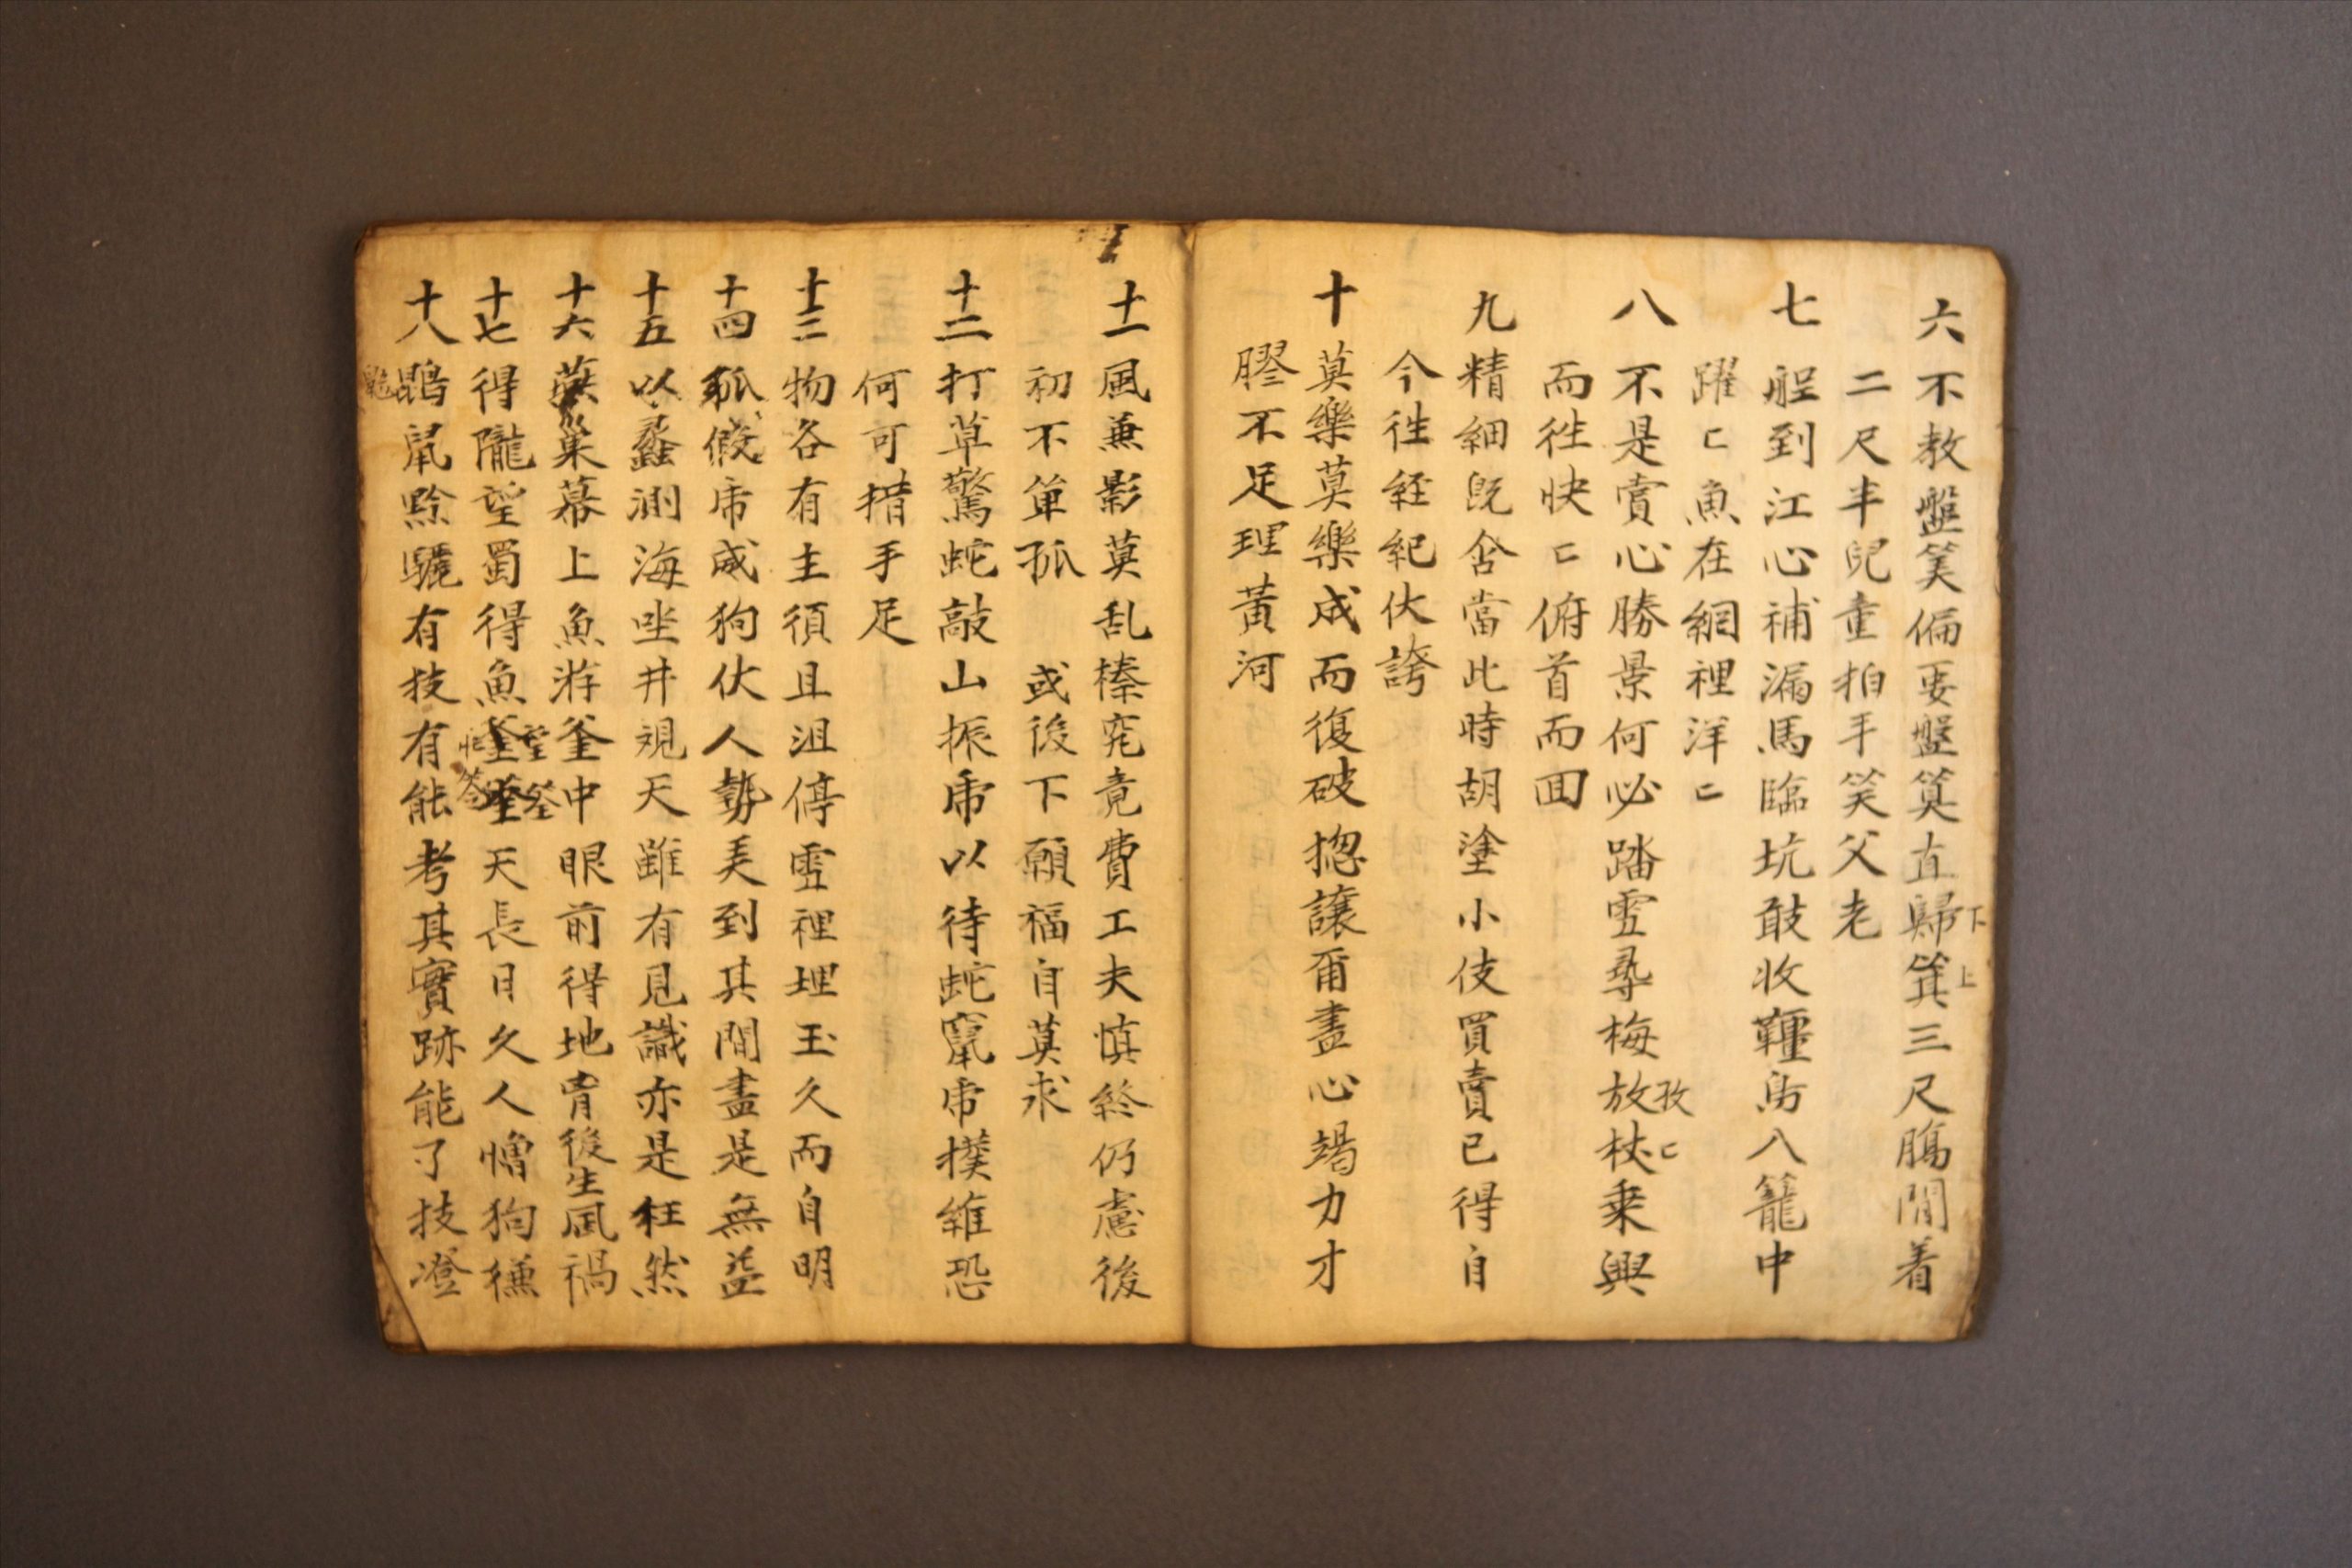 六 不教盤筭偏要盤筭直歸箕三尺腸閒着
下
上
二尺半兒童拍手笑父老
七 船到江心補漏馬臨坑敢收韁鳥入籠中
躍〻魚在網裡洋〻
八 不是賞心勝景何必踏雪尋梅放杖乗興
孜〻
而徃快〻俯首而囬
九 精細既舍當此時胡塗小伎買賣已得自
今徃経紀伏誇
十 莫樂莫樂成而復破揔讓爾盡心竭力才
膠不足理黃河
十一 風兼影莫乱榛䆒竟費工夫慎終仍慮後
初不単孤 或後下願福自莫求
十二 打草驚蛇敲山振虎以待蛇竄虎撲維恐
何可措手足
十三 物各有主須且沮停雪裡埋玉久而自明
十四 狐假虎威狗伏人勢美到其間盡是無益
十五 以蠡測海坐井視天雖有見識亦是枉然
十六 燕巢幕上魚游釜中眼前得地背後生風禍
十七 得隴望蜀得魚筌天長日久人憎狗嫌
望筌
忘筌
十八 鼠黔驢有技有能考其實跡能了技澄